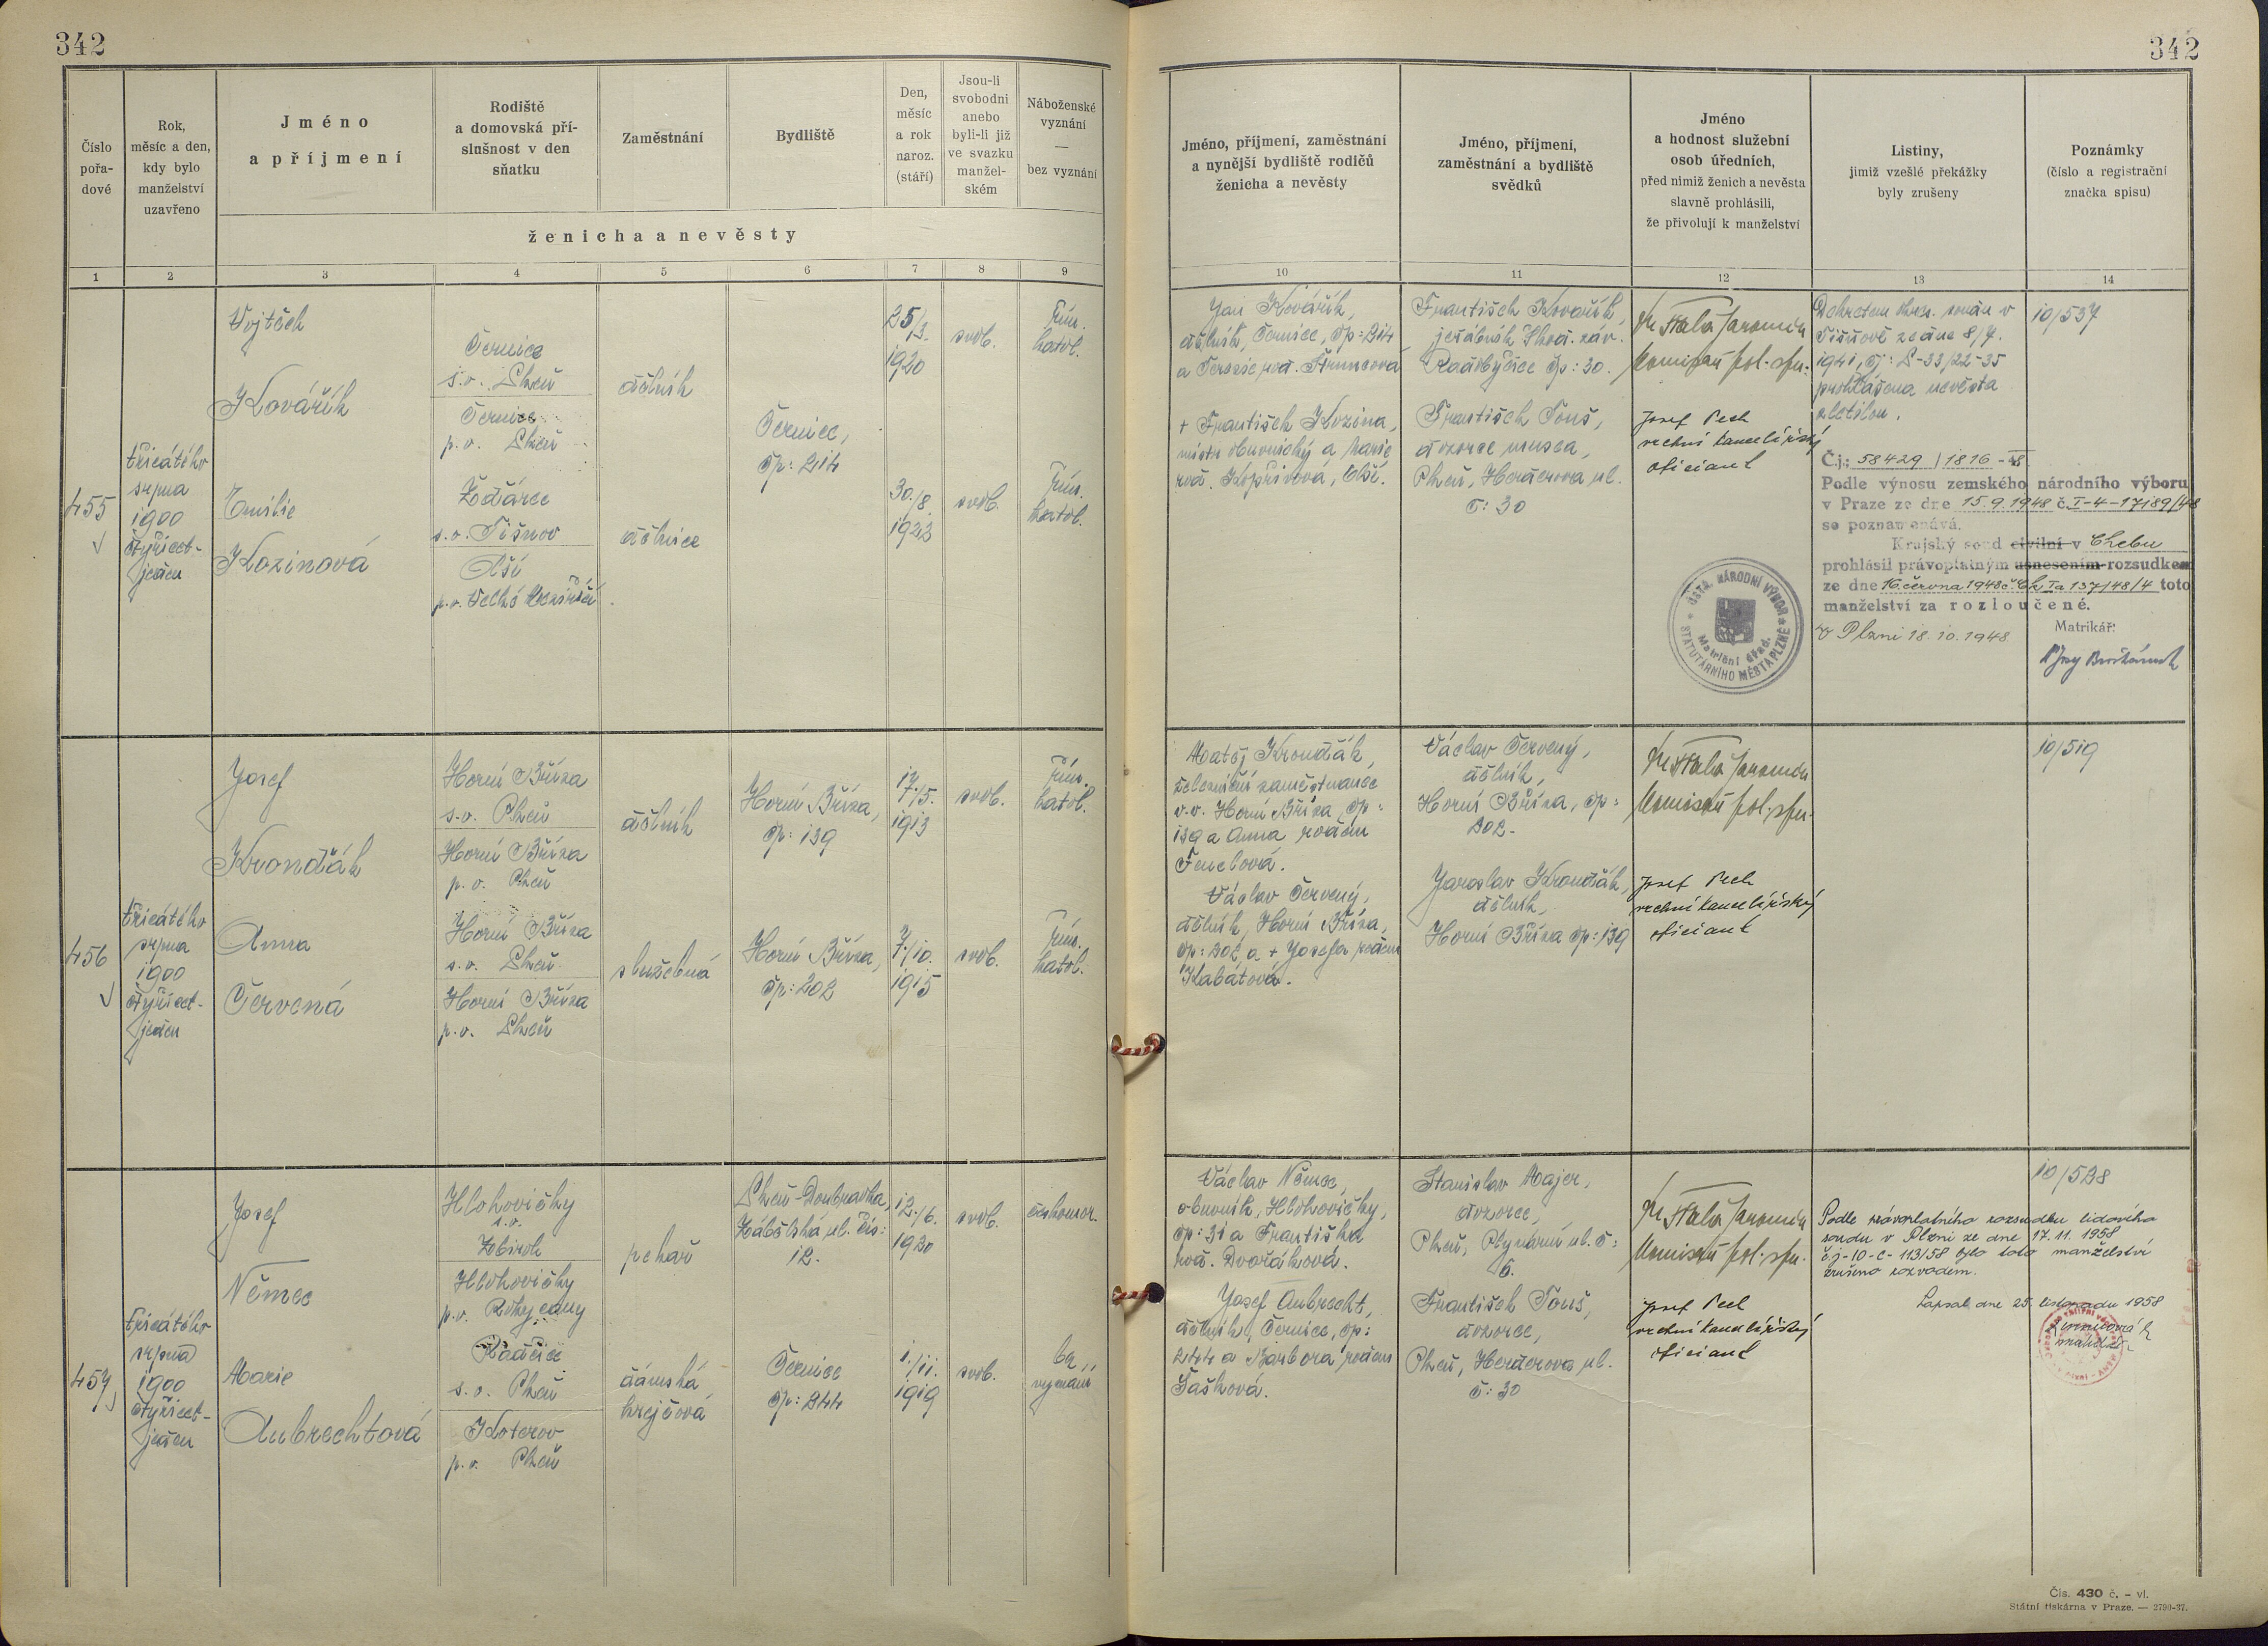 342
342
Číslo
pořa-
dové
Rok,
měsíc a den,
kdy bylo
manželství
uzavřeno
Jméno
a příjmení
Rodiště
a domovská pří-
slušnost v den
sňatku
Zaměstnání
Bydliště
Den,
měsíc
a rok
naroz.
(stáří)
Jsou-li
svobodni
anebo
byli-li již
ve svazku
manžel-
ském
Náboženské
vyznání
—
bez vyznání
ženicha a nevěsty
1
2
3
4
5
6
7
8
9
Jméno, příjmení, zaměstnání
a nynější bydliště rodičů
ženicha a nevěsty
Jméno, příjmení,
zaměstnání a bydliště
svědků
Jméno
a hodnost služební
osob úředních,
před nimiž ženich a nevěsta
slavně prohlásili,
že přivolují k manželství
Listiny,
jimiž vzešlé překážky
byly zrušeny
Poznámky
(číslo a registrační
značka spisu)
10
11
12
13
14
455
třicátého
srpna
1900
čtyřicet-
jeden
Vojtěch
Kovářík
Emilie
Kozinová
Černice
s.o. Plzeň
Černice
p.o. Plzeň
Žďárec
s.o. Tišnov
Olší
p.o. Velké Meziříčí
dělník
dělnice
Černice,
čp: 214
25/3.
1920
30./8.
1923
svob.
svob.
řím.
katol.
řím.
katol.
Jan Kovářík,
dělník, Černice, čp: 214
a Terezie, roz.
+ František Kozina,
mistr obuvnický a Marie
roz. Kopřivová, Olší.
František Kovářík,
jeřábník Škod. záv.
Radobyčice čp: 30.
František Touš,
dozorce musea,
Plzeň, Herderova ul.
č: 30
Jaromír
komisař pol. spr.
Josef Pech
vrchní kancelářský
oficiant
Dekretem okres. soudu v
Tišnově ze dne 8/7.
1941, čj: P-33/22-35
prohlášena nevěsta
zletilou.
10/537
Čj.: 58429/1816-48
Podle výnosu zemského národního výboru
v Praze ze dne 15.9.1948 č. I-4-17189/48
se poznamenává.
Krajský soud civilní v Chebu
prohlásil právoplatným usnesením rozsudkem
ze dne 16. června 1948 č. Ck Ia 137/48/4 toto
manželství za rozloučené.
V Plzni 18.10.1948.
Matrikář:
ÚSTŘ. NÁRODNÍ VÝBOR
STATUTÁRNÍHO MĚSTA PLZNĚ
Matriční úřad.
456
třicátého
srpna
1900
čtyřicet-
jeden
Josef
Krondťák
Anna
Červená
Horní Bříza
s.o. Plzeň
Horní Bříza
p.o. Plzeň
Horní Bříza
s.o. Plzeň
Horní Bříza
p.o. Plzeň
dělník
služebná
Horní Bříza,
čp: 139
Horní Bříza,
čp: 202
17./5.
1913
7./10.
1915
svob.
svob.
řím.
katol.
řím.
katol.
Matěj Krondťák,
železniční zaměstnanec
v.v. Horní Bříza, čp:
139 a Anna rozená
Fenclová.
Václav Červený,
dělník, Horní Bříza,
čp: 202 a + Josefa rozená
Kabátová.
Václav Červený,
dělník,
Horní Bříza, čp:
202-
Jaroslav Krondťák,
dělník,
Horní Bříza čp: 139
Jaromír
komisař pol. spr.
Josef Pech
vrchní kancelářský
oficiant
10/519
457
třicátého
srpna
1900
čtyřicet-
jeden
Josef
Němec
Marie
Aubrechtová
Hlohovičky
s.o.
Zbiroh
Hlohovičky
p.o. Rokycany
Radčice
s.o. Plzeň
Koterov
p.o. Plzeň
pekař
dámská
krejčová
Plzeň-Doubravka,
Zábělská ul. čís:
12.
Černice
čp: 244
12./6.
1920
1./11.
1919
svob.
svob.
českomor.
bez
vyznání
Václav Němec,
obuvník, Hlohovičky,
čp: 31 a Františka
roz. Dvořáková.
Josef Aubrecht,
dělník, Černice, čp:
244 a Barbora rozená
Tašková.
Stanislav Majer,
dozorce,
Plzeň, Plynární ul. č:
6.
František Touš,
dozorce,
Plzeň, Herderova ul.
č: 30
Jaromír
komisař pol. spr.
Josef Pech
vrchní kancelářský
oficiant
10/538
Podle právoplatného rozsudku lidového
soudu v Plzni ze dne 17.11.1958
č.j-10-C-113/58 bylo toto manželství
zrušeno rozvodem.
Zapsal dne 25. listopadu 1958
Čís. 430 č. – vl.
Státní tiskárna v Praze. — 2790-37.